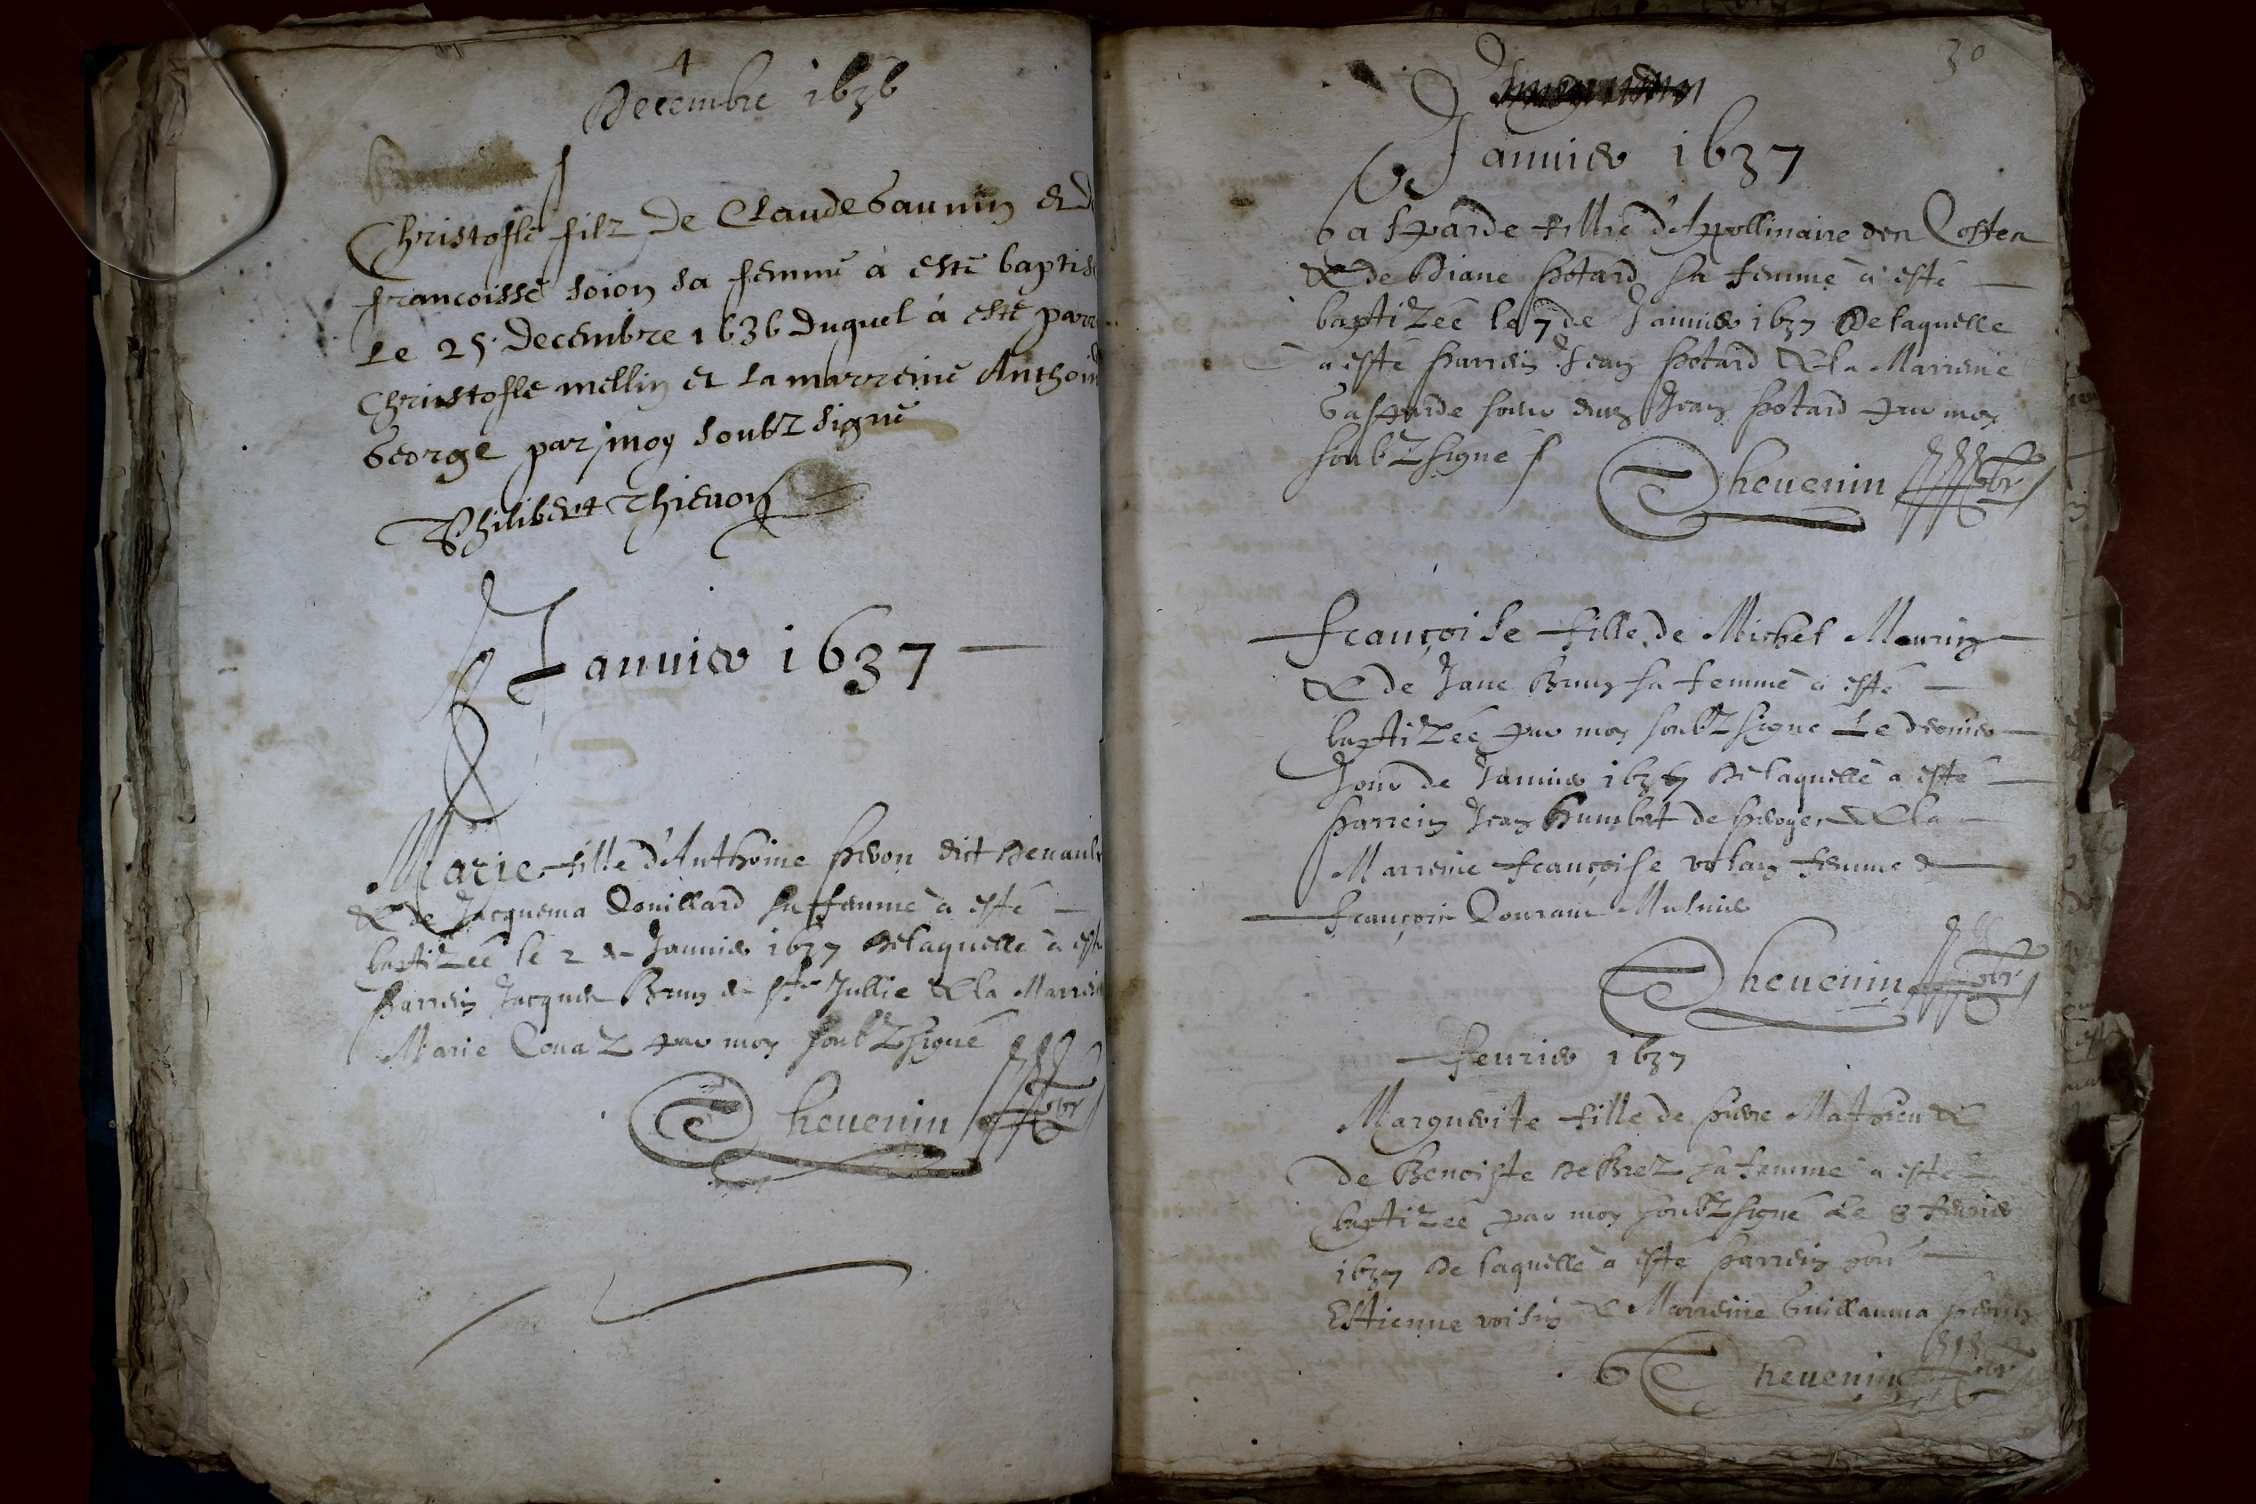 Decembre 1636
Christofle filz de Claude Gaunin et d
francoisse soion sa femme à esté baptis
Le 25. decembre 1636 duquel á esté parr
Christofle mellin et la marreine Anthoin
George par moy soubz signé
Philibert Thieuon
Januier 1637
Marie fille d'Anthoine Piron dict
& de Jacquema Couillard sa femme à esté
baptizeé le 2 de Januier 1637 De laquelle à est
Parrein Jacques Brun de Ste Jullie & la Marrei
Marie Couaz par moy soubz signé
Theuenin
30
Januier 1637
Gasparde fillie d'Appollinaire des Costes
& de Diane Potard sa femme à esté
baptizeé le 7 de Januier 1637 De laquelle
à esté Parrein Jean Potard & la Marreine
Gasparde soeur dud Jean Potard par moy
soubz signé
Theuenin
françoise fille de Michel Mourin
& de Jane Brun sa femme à esté
baptizeé par moy soubz signé Le dernier
Jour de Januier 1637 De laquelle à esté
Parrein Jean Humbert de & la
Marreine françoise femme de
françois Courant Musnier
Theuenin
feurier 1637
Marguerite fille de Pierre Mathieu &
de Benoiste DeBrez sa femme à esté
baptizeé par moy soubz signé Le 8 feurier
1637 De laquelle à esté Parrein hon
Estienne voisin & Marreine Guillauma Perrin
Theuenin